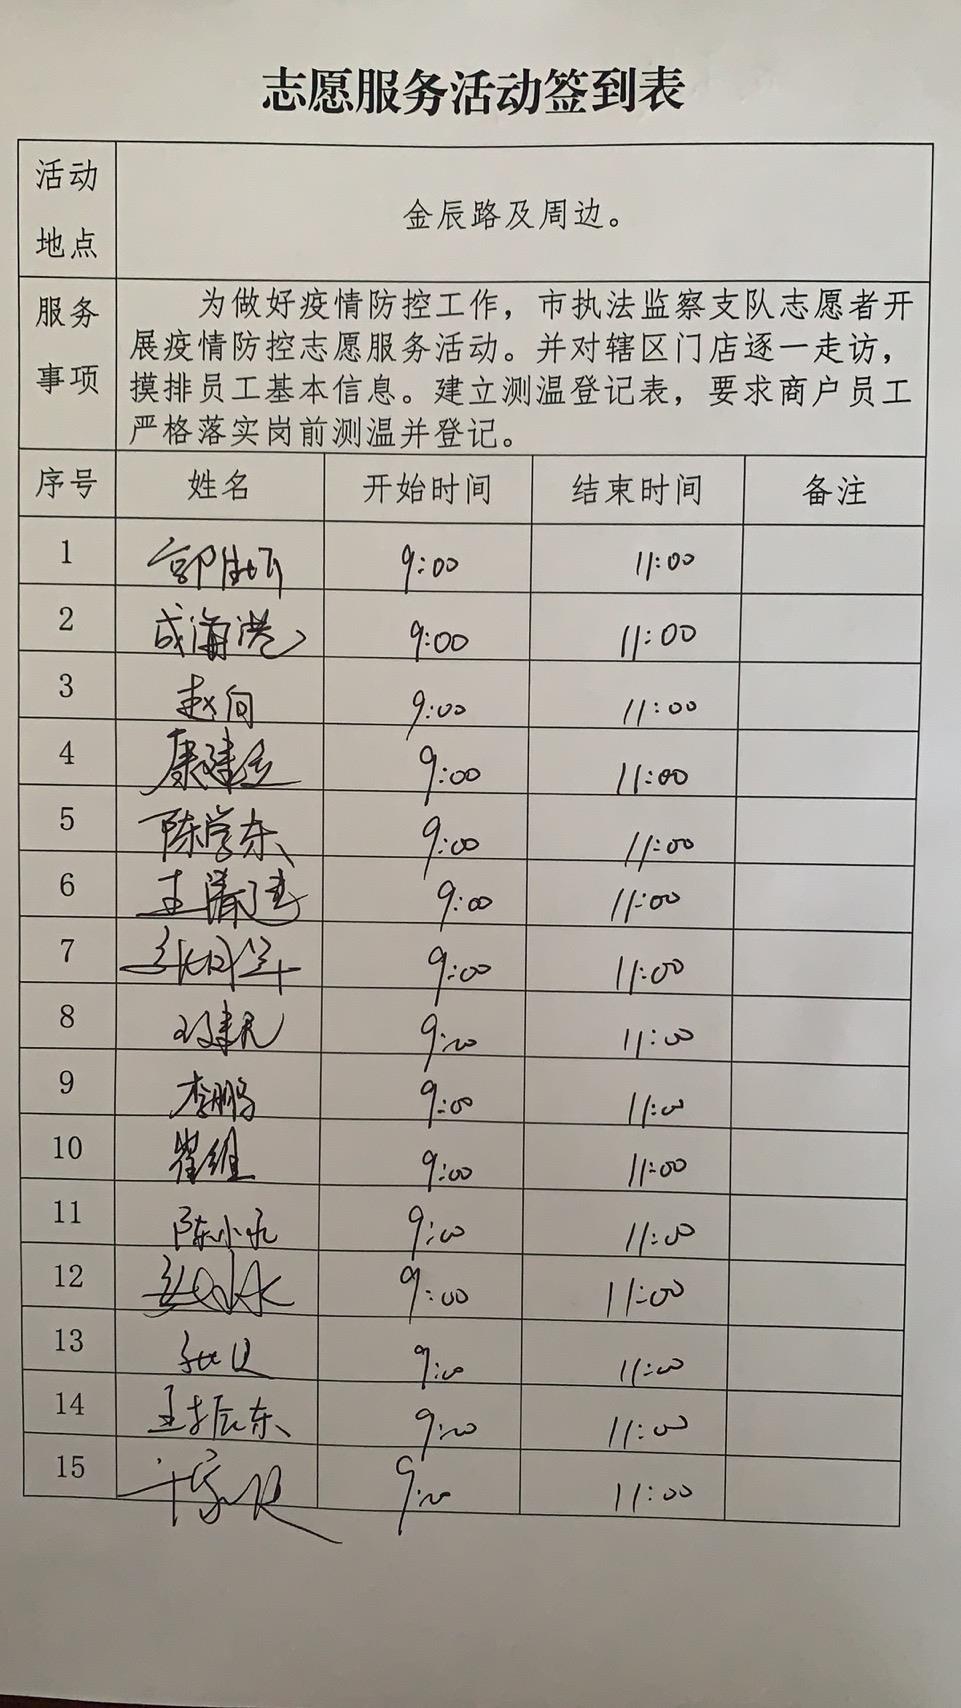 志愿服务活动签到表
活动地点
金辰路及周边。
服务事项
为做好疫情防控工作，市执法监察支队志愿者开
展疫情防控志愿服务活动。并对辖区门店逐一走访，
摸排员工基本信息。建立测温登记表，要求商户员工
严格落实岗前测温并登记。
序号 姓名 开始时间 结束时间 备注
1 9:00 11:00
2 成海港 9:00 11:00
3 赵向 9:00 11:00
4 9:00 11:00
5 陈学东 9:00 11:00
6 9:00 11:00
7 9:00 11:00
8 9:00 11:00
9 李鹏 9:00 11:00
10 崔维 9:00 11:00
11 陈小永 9:00 11:00
12 9:00 11:00
13 9:00 11:00
14 王振东 9:00 11:00
15 9:00 11:00